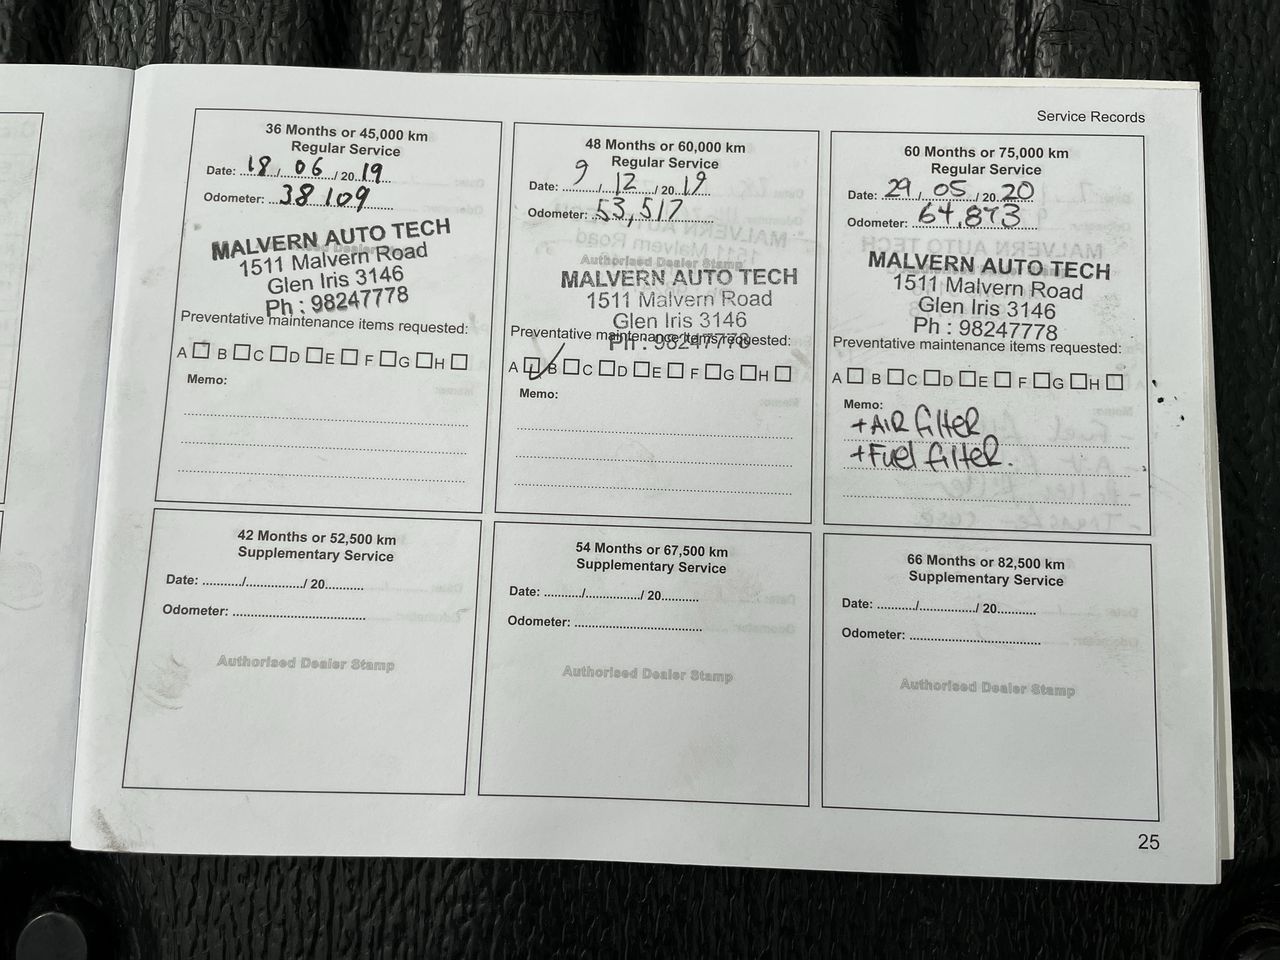 Service Records
36 Months or 45,000 km
Regular Service
Date: 18 / 06 / 20 19
Odometer: 38 109
MALVERN AUTO TECH
1511 Malvern Road
Glen Iris 3146
Ph : 98247778
Preventative maintenance items requested:
A B C D E F G H
Memo:
48 Months or 60,000 km
Regular Service
Date: 9 / 12 / 20 19
Odometer: 53,517
Authorised Dealer Stamp
MALVERN AUTO TECH
1511 Malvern Road
Glen Iris 3146
Ph : 98247778
Preventative maintenance items requested:
A B C D E F G H
Memo:
60 Months or 75,000 km
Regular Service
Date: 29 / 05 / 20 20
Odometer: 64,873
MALVERN AUTO TECH
1511 Malvern Road
Glen Iris 3146
Ph : 98247778
Preventative maintenance items requested:
A B C D E F G H
Memo:
+ AIR filter
+ Fuel filter.
42 Months or 52,500 km
Supplementary Service
Date: ........../.............../ 20..........
Odometer: ..................................
Authorised Dealer Stamp
54 Months or 67,500 km
Supplementary Service
Date: ........../.............../ 20..........
Odometer: ..................................
Authorised Dealer Stamp
66 Months or 82,500 km
Supplementary Service
Date: ........../.............../ 20..........
Odometer: ..................................
Authorised Dealer Stamp
25